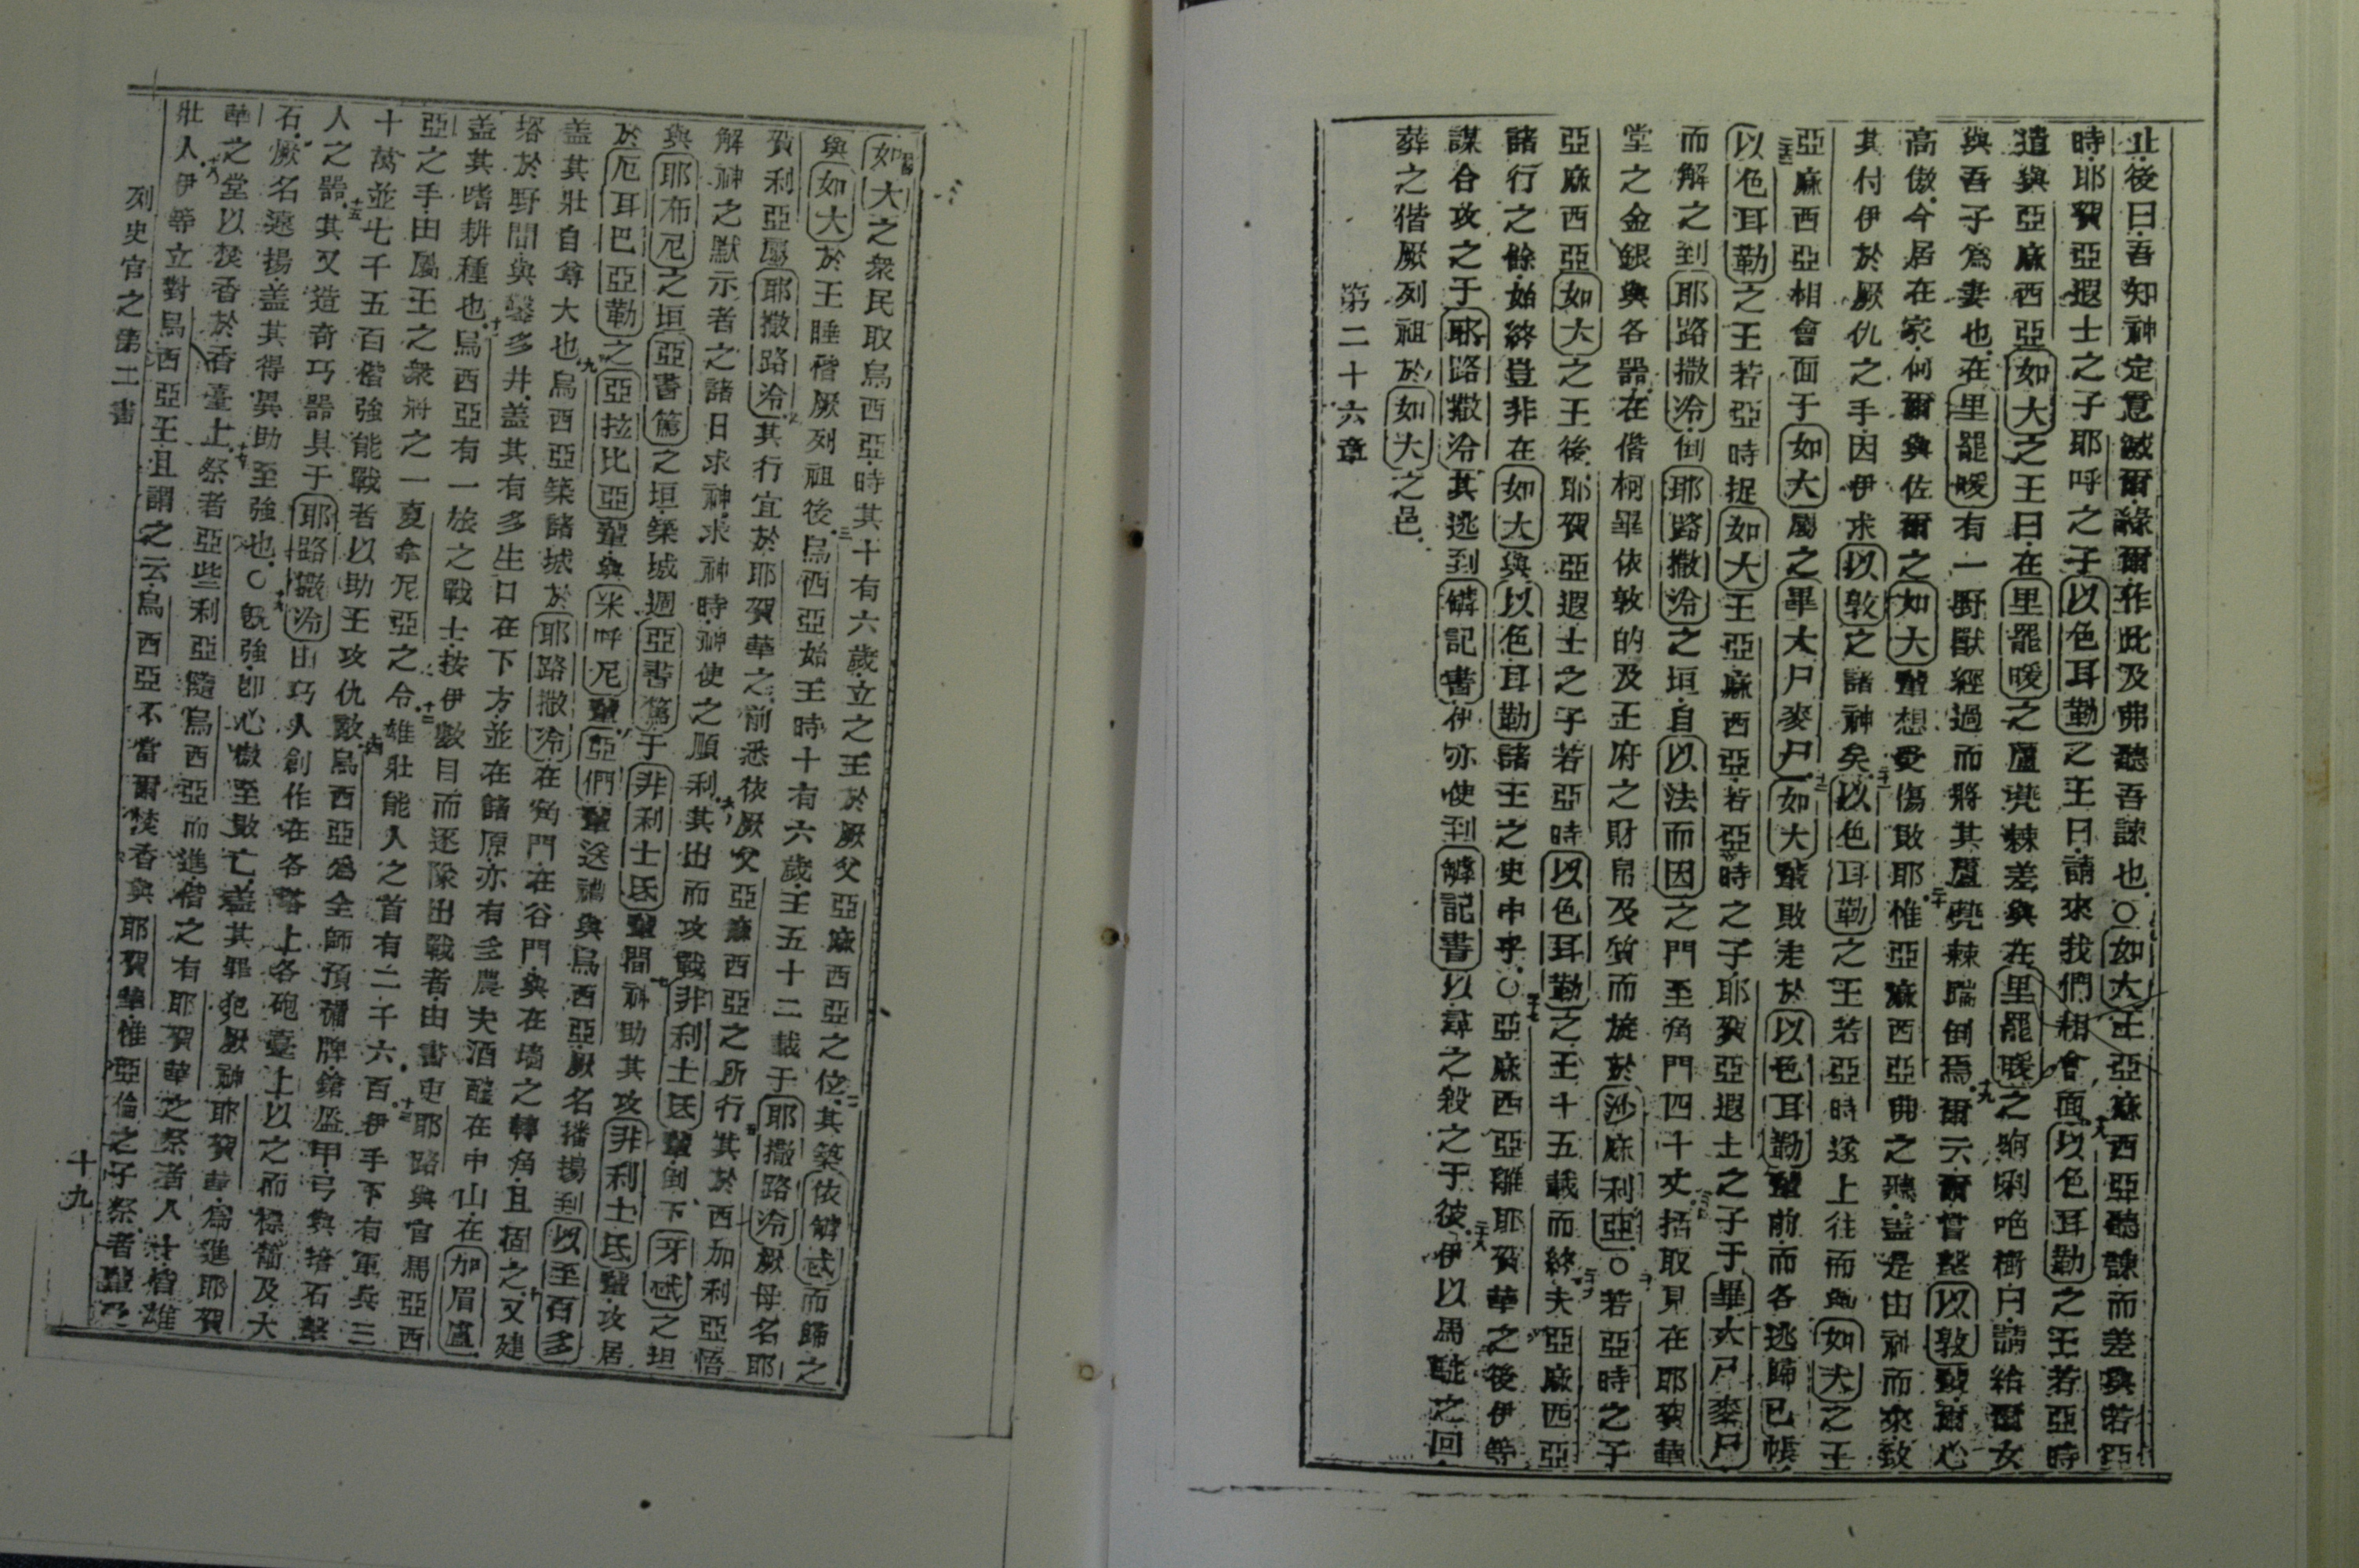 止後曰吾知神定意滅爾緣爾作此及弗聽吾諫也○如大王亞麻西亞聽諫而差與若亞
時耶賀亞遐士之子耶呼之子以色耳勒之王曰請來我們相會面十八以色耳勒之王若亞時
遣與亞麻西亞如大之王曰在里罷暖之蘆棘差與在里罷暖之栢樹曰請給爾女
與吾子爲妻也在里罷暖有一野獸經過而將其蘆棘踹倒焉十九爾云爾嘗擊以敦爾心
高傲今居在家何爾與佐爾之如大輩想受傷敗耶二十惟亞麻西亞弗之聽蓋是由神而來致
其付伊於厥仇之手因伊求以敦之諸神矣二一以色耳勒之王若亞時遂上往而與如大之王
亞麻西亞相會面于如大屬之畢大尸麥尸二二如大輩敗走於以色耳勒輩前而各逃歸已帳
二三以色耳勒之王若亞時捉如大王亞麻西亞若亞時之子耶賀亞遐士之子于畢大尸麥尸
而解之到耶路撒冷倒耶路撒冷之垣自以法而因之門至角門四十丈括取見在耶賀華
堂之金銀與各器在偕柯畢依敦的及王府之財帛及質而旋於沙麻利亞○若亞時之子
亞麻西亞如大之王後耶賀亞遐士之子若亞時以色耳勒之王十五載而終夫亞麻西亞
諸行之餘始終豈非在如大與以色耳勒諸王之史中乎○二七亞麻西亞離耶賀華之後伊等
謀合攻之于耶路撒冷其逃到𨏒記書伊亦使到𨏒記書以尋之殺之于彼二八伊以馬駝之回
葬之偕厥列祖於如大之邑
第二十六章
如大之衆民取烏西亞時其十有六歲立之王於厥父亞麻西亞之位二其築依𨏒忒而歸之
與如大於王睡偕厥列祖後三烏西亞始王時十有六歲王五十二載于耶撒路冷厥母名耶
賀利亞屬耶撒路冷其行宜於耶賀華之前悉依厥父亞麻西亞之所行其於西加利亞悟
解神之默示者之諸日求神求神時神使之順利六其出而攻戰非利士氐輩倒下牙忒之垣
與耶布尼之垣亞書篤之垣築城週亞書篤于非利士氐輩間七神助其攻非利士氐輩攻居
於厄耳巴亞勒之亞拉比亞輩與米呼尼輩亞們輩送禮與烏西亞厥名播揚到以至百多
蓋其壯自尊大也九烏西亞築諸城於耶路撒冷在角門在谷門與在墻之轉角且固之十又建
塔於野間與鑿多井蓋其有多生口在下方並在諸原亦有多農夫酒醡在中山在加眉盧
蓋其嗜耕種也十一烏西亞有一旅之戰士按伊數目而逐隊出戰者由書吏耶路與官馬亞西
亞之手由屬王之衆將之一夏拿尼亞之令十二雄壯能人之首有二千六百十三伊手下有軍兵三
十萬並七千五百偕強能戰者以助王攻仇敵十四烏西亞爲全師預禰牌鎗盔甲弓與擲石擊
人之器十五其又造奇巧器具于耶路撒冷由巧人創作在各塔上各砲臺上以之而標箭及大
石厥名遠揚蓋其得異助至強也○十六旣強卽心傲至敗亡蓋其罪犯厥神耶賀華爲進耶賀
華之堂以焚香於香臺上十七祭者亞些利亞隨烏西亞而進偕之有耶賀華之祭者八十皆雄
壯人十八伊等立對烏西亞王且謂之云烏西亞不當爾焚香與耶賀華惟亞倫之子祭者輩乃
列史官之第二書
十九